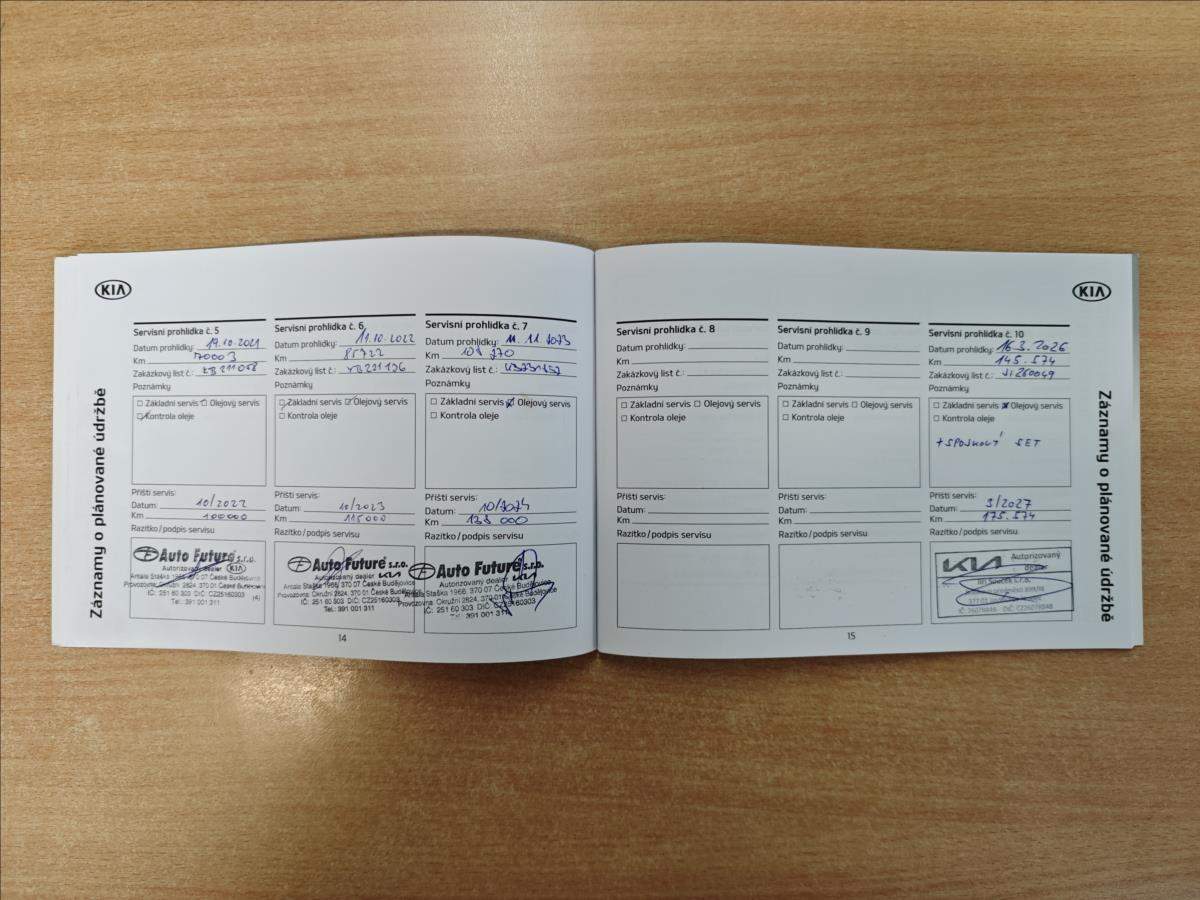 KIA
Záznamy o plánované údržbě
Servisní prohlídka č. 5
Datum prohlídky: 19.10.2021
Km 70003
Zakázkový list č.:
Poznámky
Základní servis Olejový servis
Kontrola oleje
Příští servis:
Datum: 10/2022
Km 100000
Razítko/podpis servisu
Auto Future s.r.o.
Autorizovaný dealer KIA
Antala Staška 1966, 370 07 České Budějovice
Provozovna: Okružní 2624, 370 01 České Budějovice
IČ: 251 60 303 DIČ: CZ25160303
Tel.: 391 001 311 (4)
Servisní prohlídka č. 6
Datum prohlídky: 11.10.2022
Km 85722
Zakázkový list č.:
Poznámky
Základní servis Olejový servis
Kontrola oleje
Příští servis:
Datum: 10/2023
Km 115000
Razítko/podpis servisu
Auto Future s.r.o.
Autorizovaný dealer KIA
Antala Staška 1966, 370 07 České Budějovice
Provozovna: Okružní 2624, 370 01 České Budějovice
IČ: 251 60 303 DIČ: CZ25160303
Tel.: 391 001 311
Servisní prohlídka č. 7
Datum prohlídky: 11.11.2023
Km
Zakázkový list č.:
Poznámky
Základní servis Olejový servis
Kontrola oleje
Příští servis:
Datum: 10/2024
Km 133 000
Razítko/podpis servisu
Auto Future s.r.o.
Autorizovaný dealer KIA
Antala Staška 1966, 370 07 České Budějovice
Provozovna: Okružní 2624, 370 01 České Budějovice
IČ: 251 60 303 DIČ: CZ25160303
Tel.: 391 001 311
14
Servisní prohlídka č. 8
Datum prohlídky:
Km
Zakázkový list č.:
Poznámky
Základní servis Olejový servis
Kontrola oleje
Příští servis:
Datum:
Km
Razítko/podpis servisu
Servisní prohlídka č. 9
Datum prohlídky:
Km
Zakázkový list č.:
Poznámky
Základní servis Olejový servis
Kontrola oleje
Příští servis:
Datum:
Km
Razítko/podpis servisu
KIA
Servisní prohlídka č. 10
Datum prohlídky: 16.3.2026
Km 145.574
Zakázkový list č.:
Poznámky
Základní servis Olejový servis
Kontrola oleje
+ SPOJKOVÝ SET
Příští servis:
Datum: 3/2027
Km 175.574
Razítko/podpis servisu
KIA Autorizovaný
15
Záznamy o plánované údržbě